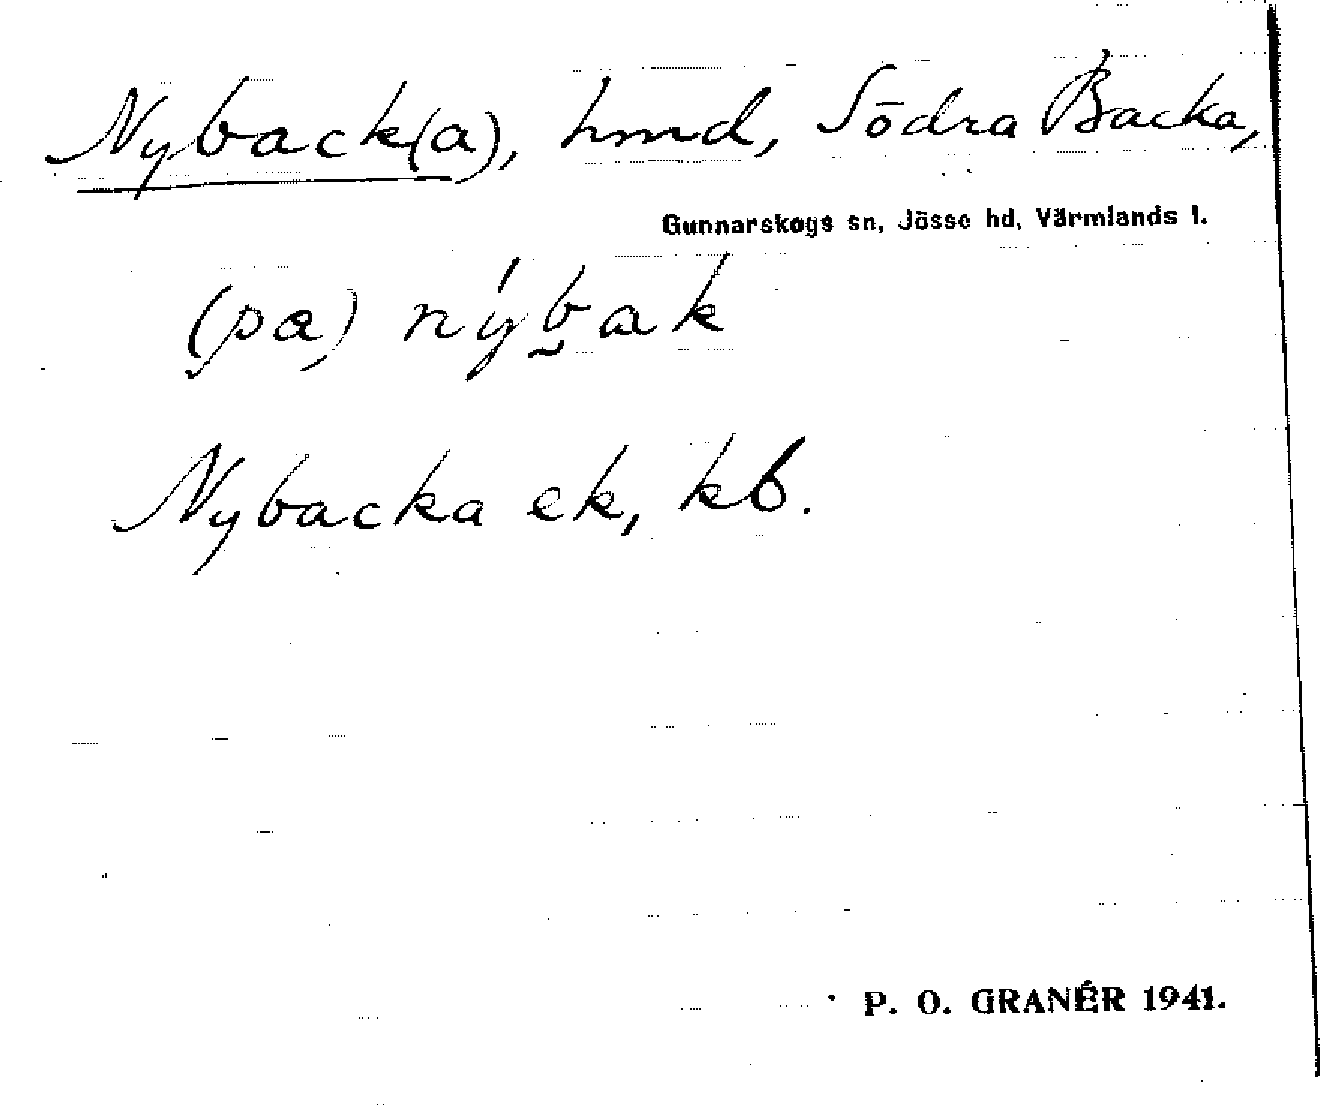 Nyback(a), hmd, Södra Backa,
Gunnarskogs sn, Jösse hd, Värmlands l.
(pa) nýb̰ak
Nybacka ek, kb.
P. O. GRANÉR 1941.